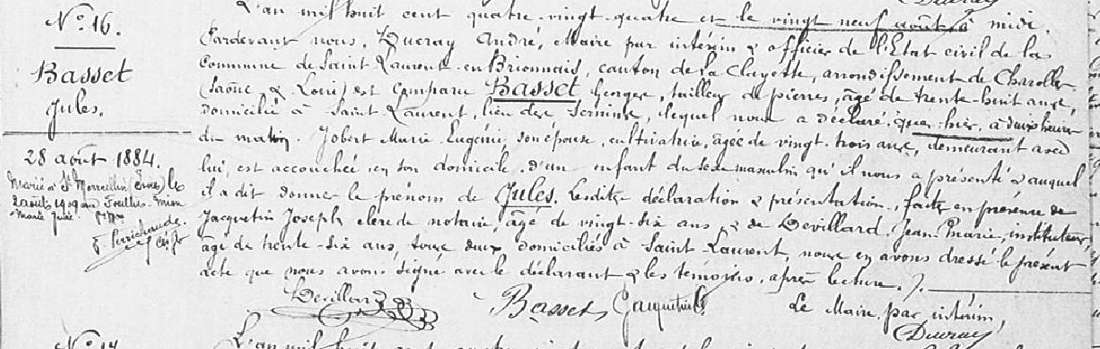 N° 16.
Basset
Jules.
28 août 1884.
Marié à St Marcellin (Isère) le
2 août 1919 avec
Marie
L'an mil huit cent quatre-vingt-quatre et le vingt neuf août à midi.
Pardevant nous, Ducray André, Maire par intérim & officier de l'Etat civil de la
Commune de Saint Laurent-en-Brionnais, canton de la Clayette, arrondissement de Charolles
(Saône & Loire) est comparu Basset Georges, tailleur de pierres, âgé de trente-huit ans,
domicilié à Saint Laurent, lieu de, lequel nous a déclaré que hier, à deux heures
du matin. Jobert Marie Eugénie, son épouse, cultivatrice, âgée de vingt-trois ans, demeurant avec
lui, est accouchée en son domicile d'un enfant du sexe masculin qu'il nous a présenté & auquel
il a dit donner le prénom de Jules. Lesdites déclaration & présentation, faites en présence de
Jacquetin Joseph clerc de notaire, âgé de vingt-six ans & de Devillard Jean-Marie, instituteur,
âgé de trente-six ans, tous deux domiciliés à Saint Laurent, nous en avons dressé le présent
acte que nous avons signé avec le déclarant & les témoins, après lecture.
Devillard Basset Jacquetin Le Maire par intérim,
Ducray
N° 17
L'an mil huit cent quatre-vingt